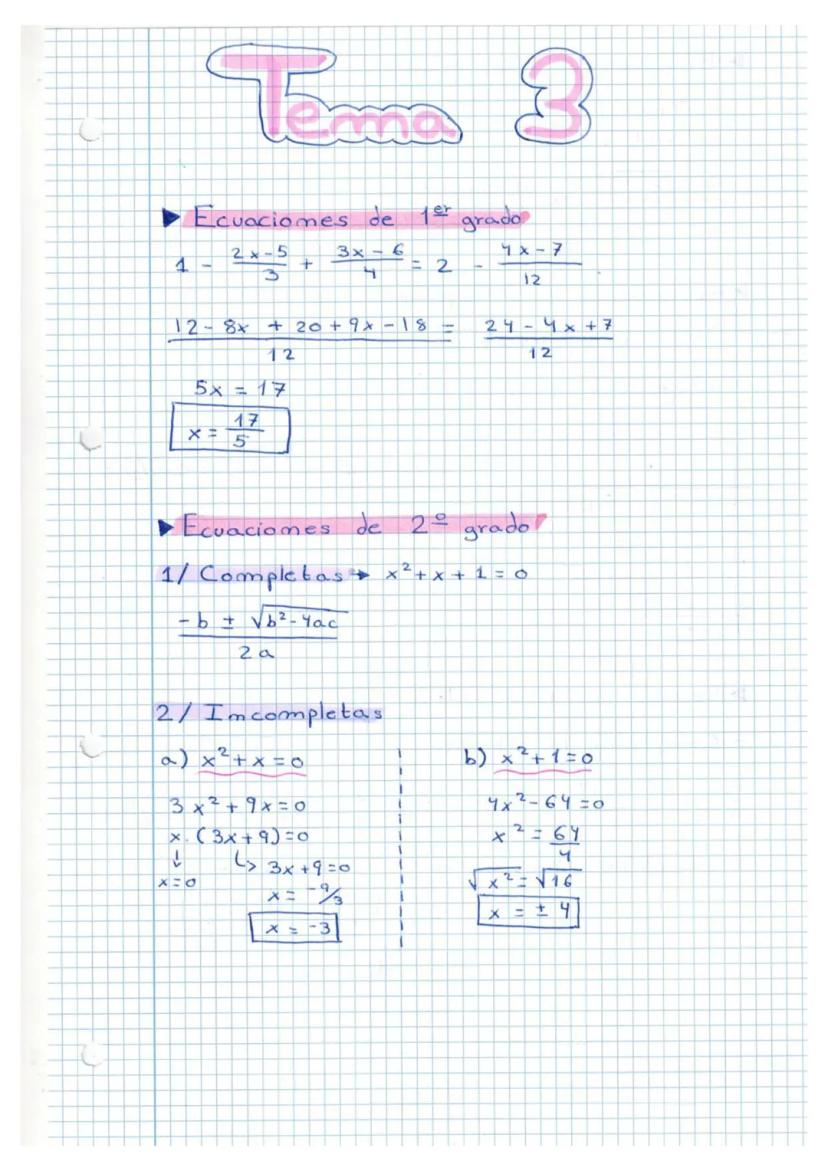 Tema 3
▶ Ecuaciones de 1er grado
1 - (2x-5)/3 + (3x-6)/4 = 2 - (4x-7)/12
(12-8x+20+9x-18)/12 = (24-4x+7)/12
5x = 17
x = 17/5
▶ Ecuaciones de 2º grado
1/ Completas → x²+x+1=0
(-b ± √(b²-4ac))/2a
2/ Incompletas
a) x²+x=0
3x²+9x=0
x.(3x+9)=0
↓ ↳ 3x+9=0
x=0
x = -9/3
x = -3
b) x²+1=0
4x²-64=0
x² = 64/4
√x² = √16
x = ±4